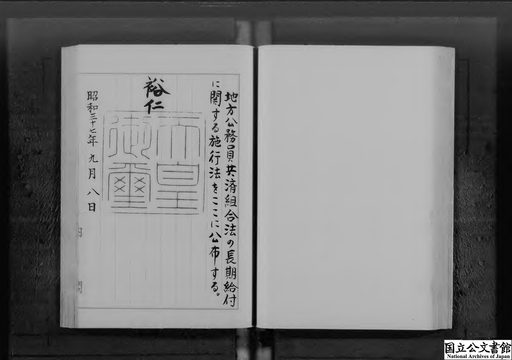 地方公務員共済組合法の長期給付
に関する施行法をここに公布する。
裕仁
天皇
御璽
昭和三十七年九月八日
国立公文書館
National Archives of Japan